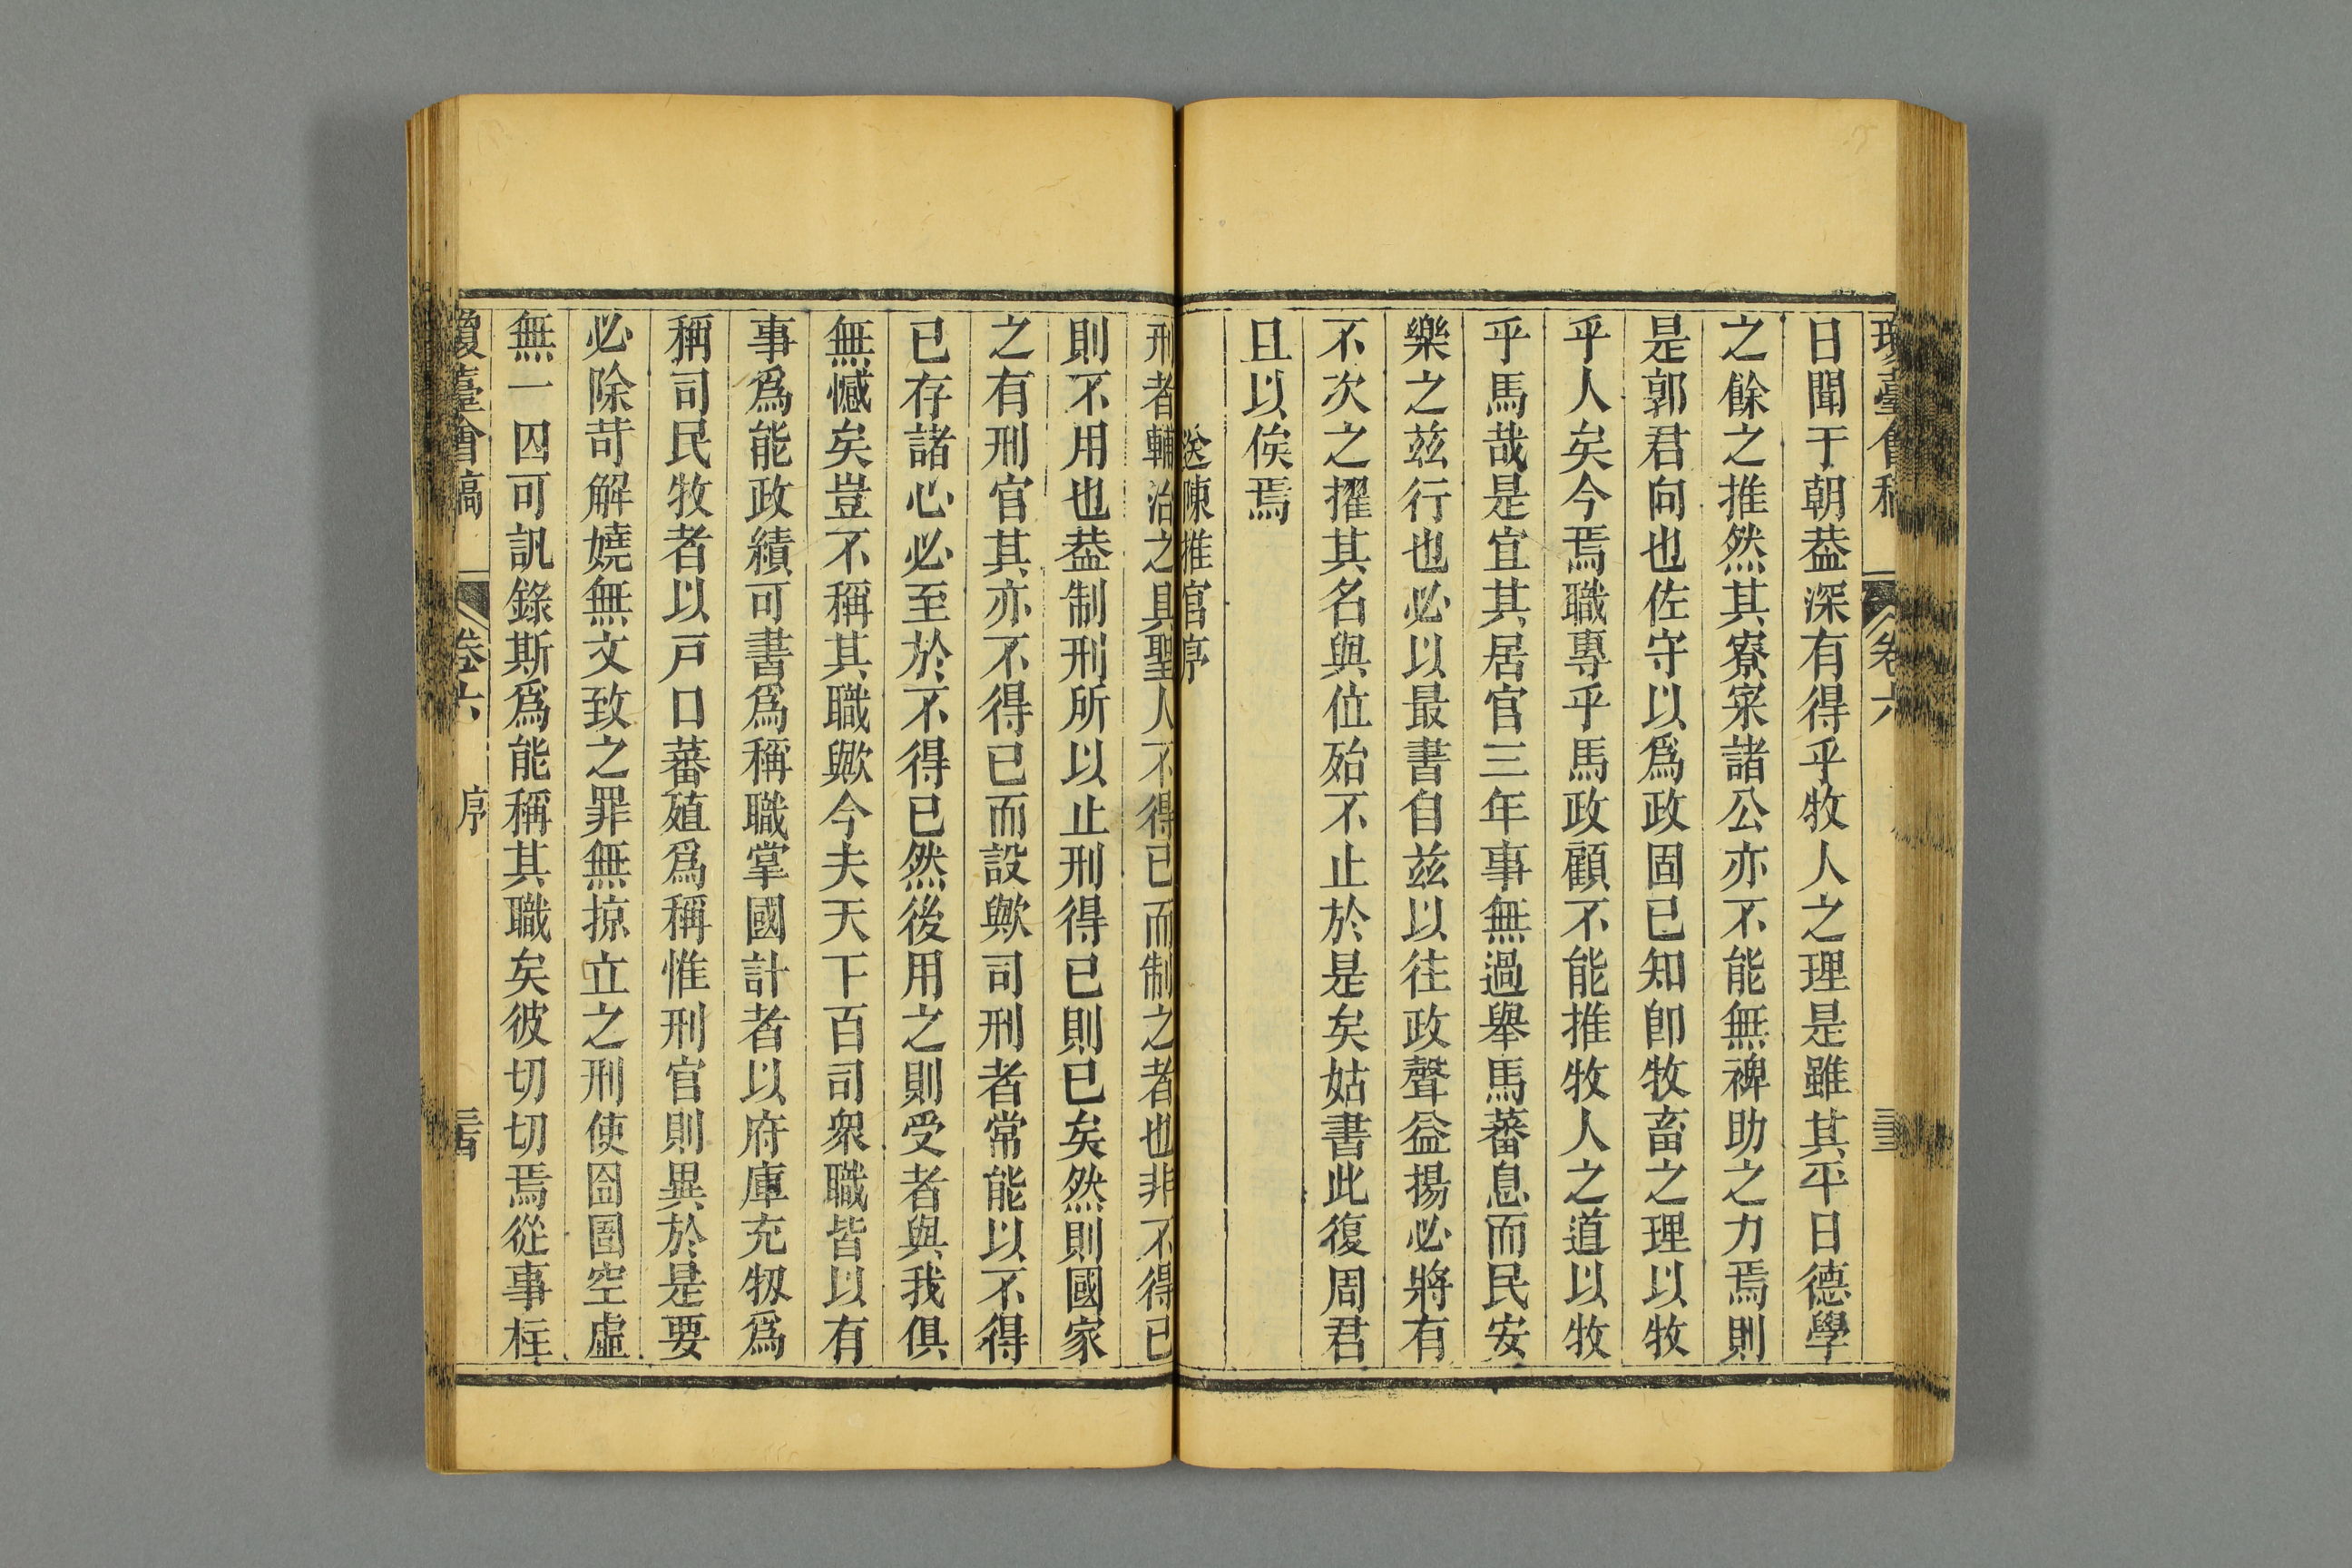 瓊臺會稿 卷六 三十三
日聞于朝葢深有得乎牧人之理是雖其平日德學
之餘之推然其寮寀諸公亦不能無裨助之力焉則
是郭君向也佐守以爲政固已知卽牧畜之理以牧
乎人矣今焉職專乎馬政顧不能推牧人之道以牧
乎馬哉是宜其居官三年事無過舉馬蕃息而民安
樂之兹行也必以最書自兹以徃政聲益揚必將有
不次之擢其名與位殆不止於是矣姑書此復周君
且以俟焉
送陳推官序
刑者輔治之具聖人不得已而制之者也非不得已
則不用也葢制刑所以止刑得已則已矣然則國家
之有刑官其亦不得已而設歟司刑者常能以不得
已存諸心必至於不得已然後用之則受者與我俱
無憾矣豈不稱其職歟今夫天下百司衆職皆以有
事爲能政績可書爲稱職掌國計者以府庫充牣爲
稱司民牧者以戸口蕃殖爲稱惟刑官則異於是要
必除苛解嬈無文致之罪無掠立之刑使囹圄空虛
無一囚可訊錄斯爲能稱其職矣彼切切焉從事桎
瓊臺會稿 卷六 序 三十四